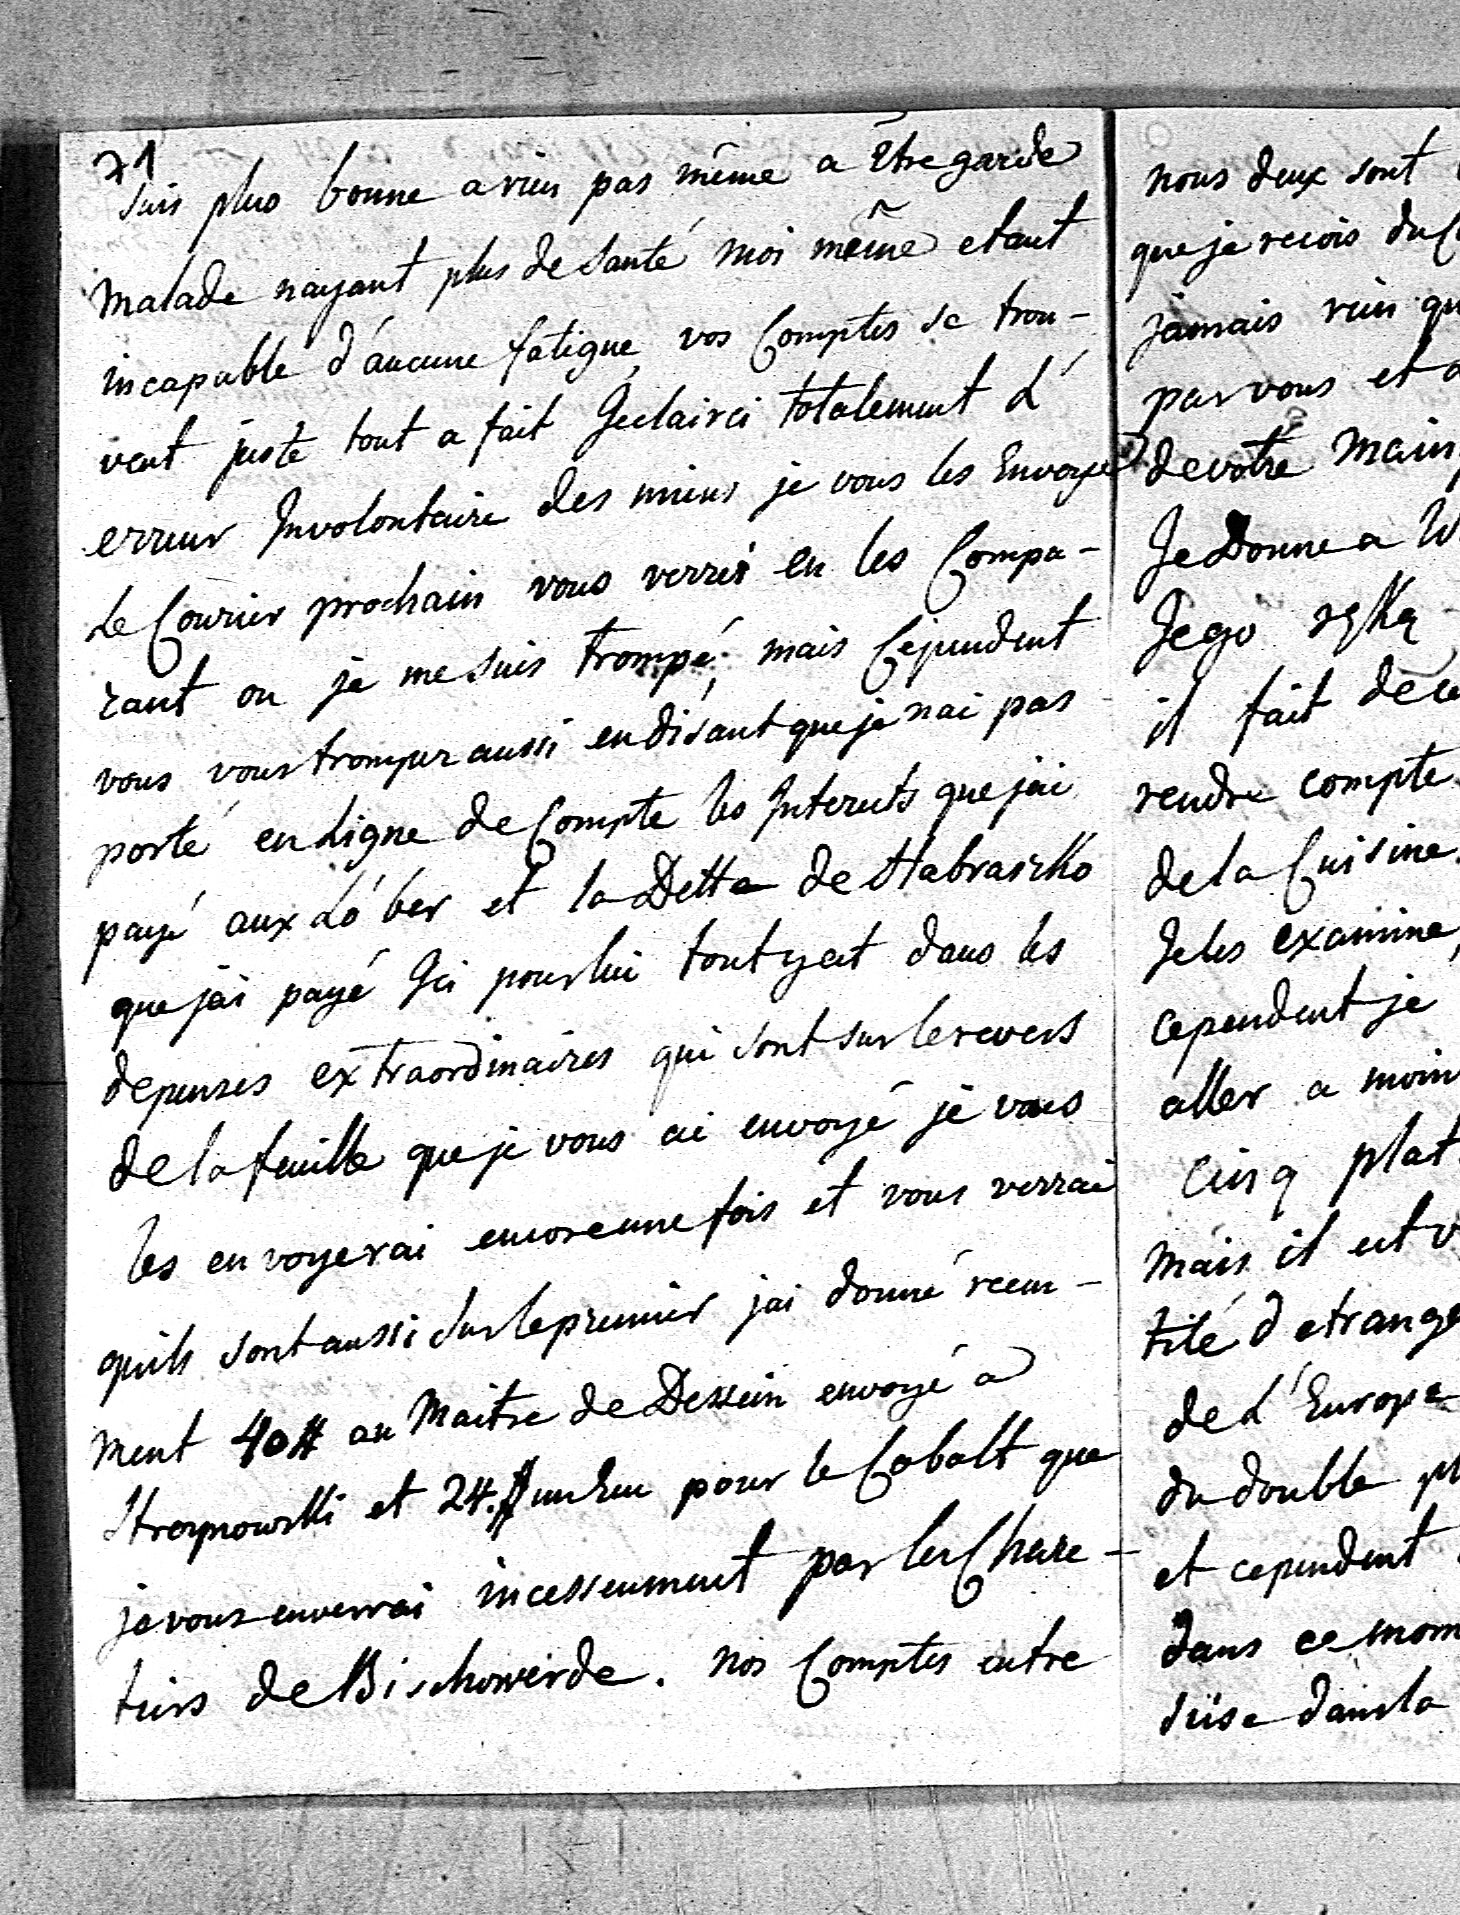 71
suis plus bonne a rien pas même a être garde
malade nayant plus de santé moi même etant
incapable d'aucune fatigue, vos Comptes se trou-
vent juste tout a fait Jeclairci totalement L'
erreur Involontaire des miens je vous les Envoye
Le Courier prochain vous verrés en les Compa-
rant ou je me suis trompé, mais Cependent
vous vous trompez aussi en disant que je nai pas
porté en Ligne de Compte les Interets que jai
payé aux Lö ber et la Dette de Habraszko
que jai payé Ici pour lui tout y est dans les
depenses extraordinaires qui sont sur le revers
de la feuille que je vous ai envoyé je vous
les envoyerai encore une fois et vous verrai
quils sont aussi sur le premier jai donné recem-
ment 40# au Maitre de Dessein envoyé a
Stroynowski et 24.# un Ecu pour le Cobalt que
je vous enverrai incessenment par les Chare-
tiers de Bischowerde. nos Comptes entre
nous deux sont
que je recois du
jamais rien
par vous et
de votre main
Je Donne a
Jego ręką
il fait de
rendre compte
de la Cuisine.
Je les examine,
cependent je
aller a moin
cinq plat
mais il est
tité d etrange
de L'Europe
du double
et cependent
dans ce mom
dans la